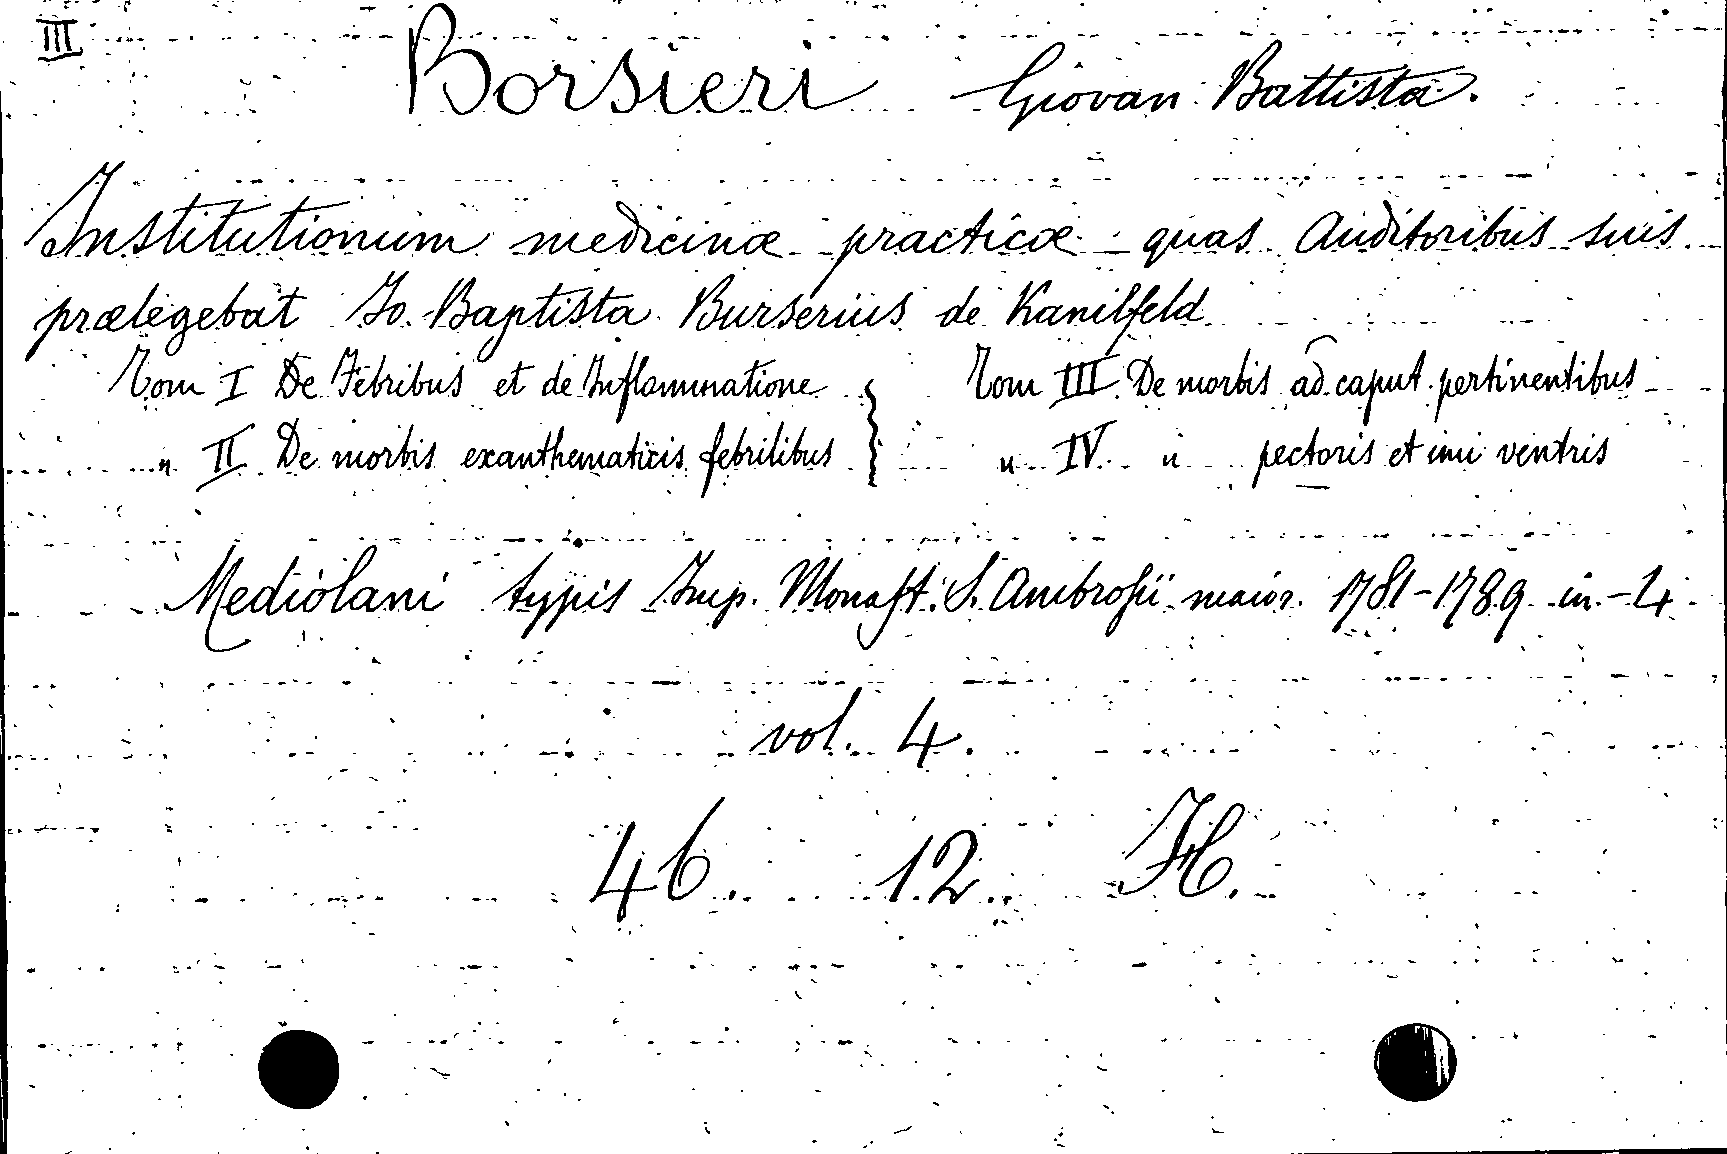 III
Borsieri Giovan Battista.
Institutionum medicinæ practicæ quas Auditoribus suis
prælegebat Jo. Baptista Burserius de Kanilfeld
Tom I De Febribus et de Inflammatione
„ II De morbis exanthematicis febrilibus
Tom III De morbis ad caput pertinentibus
„ IV „ pectoris et imi ventris
Mediolani typis Imp. Monaſt. S. Ambroſii maior. 1781-1789 in-4.
vol. 4.
46. 12. H.